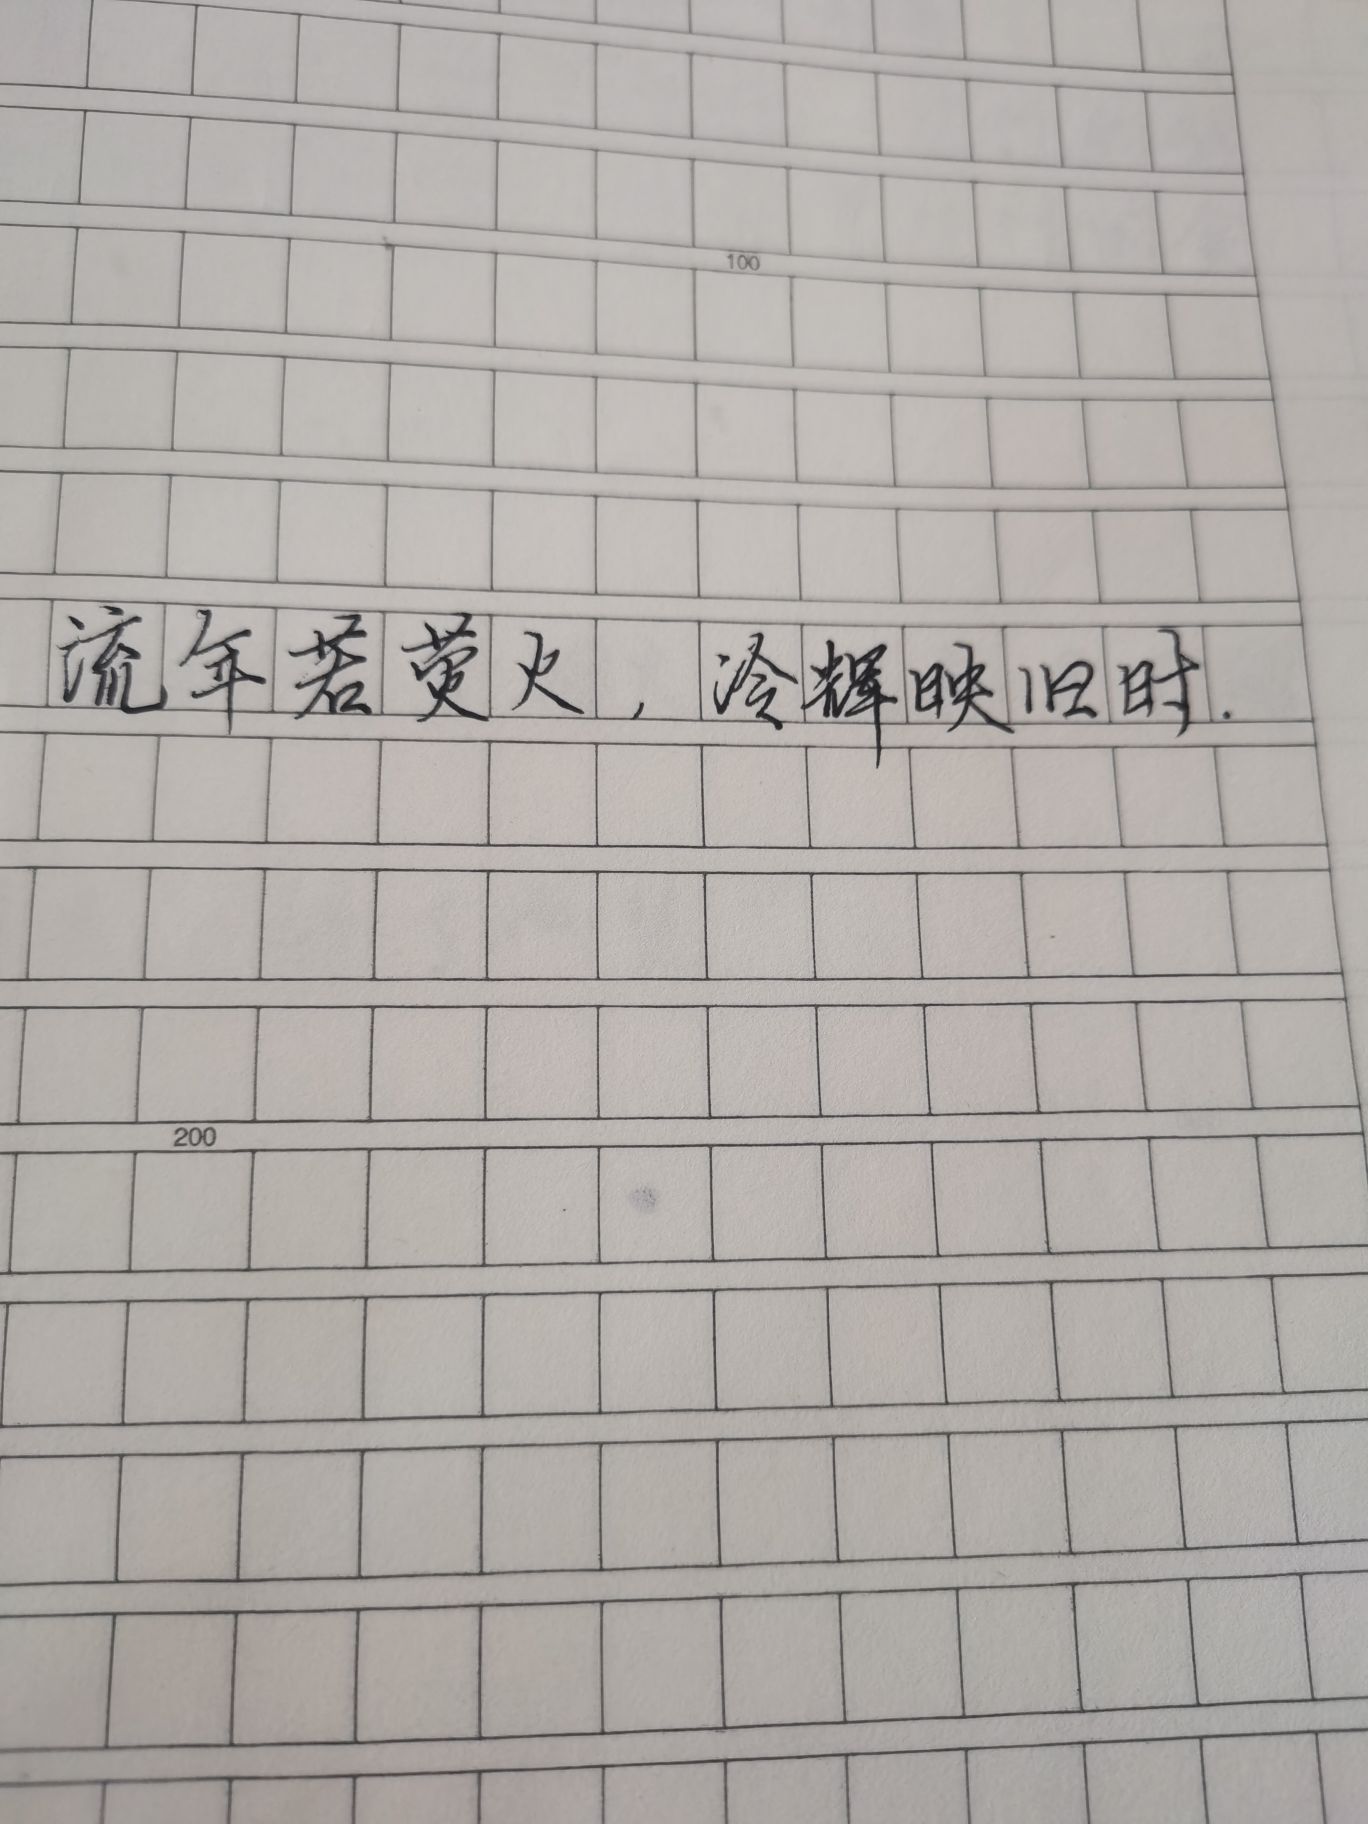 100
流年若萤火，冷辉映旧时.
200